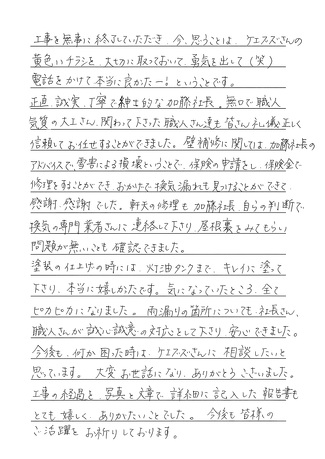 工事を無事に終了していただき、今、思うことは、ケエフズさんの
黄色いチラシを、大切に取っておいて、勇気を出して(笑)
電話をかけて本当に良かったー!ということです。
正直、誠実、丁寧で紳士的な加藤社長。無口で職人
気質の大工さん、関わって下さった職人さん達も皆さん礼儀正しく
信頼してお任せすることができました。壁補修に関しては、加藤社長の
アドバイスで、雪害による損壊ということで、保険の申請をし、保険金で
修理をすることができ、おかげで換気漏れも見つけることができて
感謝、感謝でした。軒天の修理も、加藤社長、自らの判断で、
換気の専門業者さんに連絡して下さり、屋根裏をみてもらい
問題が無いことも確認できました。
塗装の仕上げの時には、灯油タンクまで、キレイに塗って
下さり、本当に嬉しかったです。気になっていたところ、全て
ピカピカになりました。雨漏りの箇所についても、社長さん、
職人さんが誠心誠意の対応をして下さり、安心できました。
今後も、何か困った時は、ケエフズさんに相談したいと
思っています。大変お世話になり、ありがとうございました。
工事の経過を、写真と文章で、詳細に記入した報告書も
とても嬉しく、ありがたいことでした。今後も皆様の
ご活躍をお祈りしております。